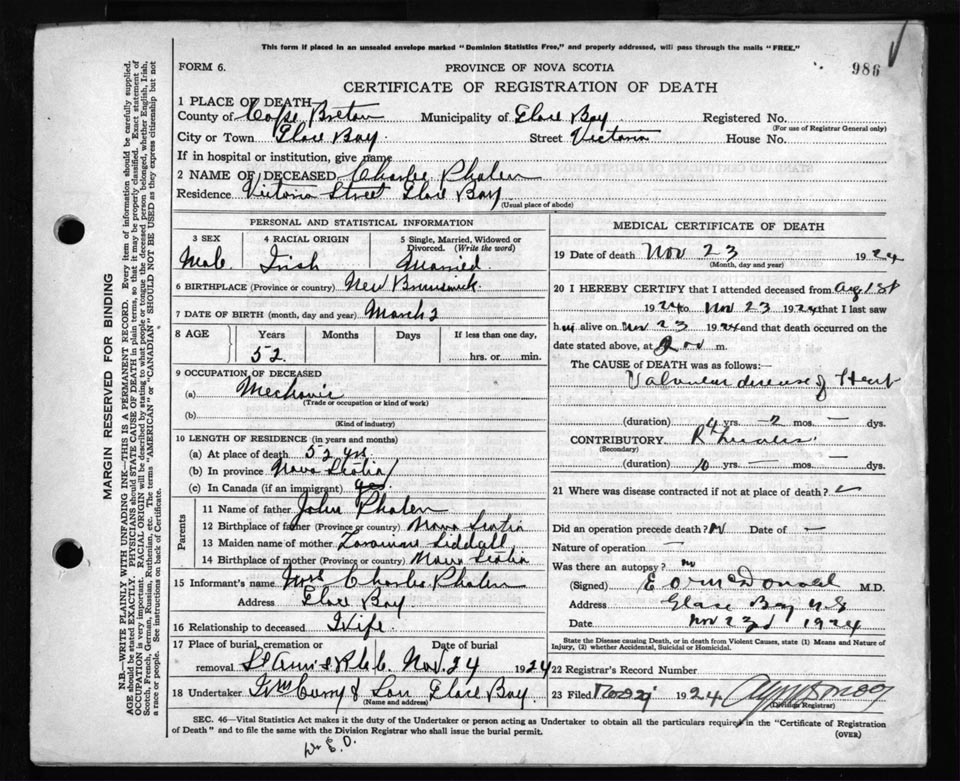 This form if placed in an unsealed envelope marked "Dominion Statistics Free," and properly addressed, will pass through the mails "FREE."
FORM 6.
PROVINCE OF NOVA SCOTIA
986
CERTIFICATE OF REGISTRATION OF DEATH
1 PLACE OF DEATH—
County of Cape Breton Municipality of Glace Bay Registered No.
(For use of Registrar General only)
City or Town Glace Bay Street Victoria House No.
If in hospital or institution, give name
2 NAME OF DECEASED Charles Phalen
Residence Victoria Street Glace Bay
(Usual place of abode)
PERSONAL AND STATISTICAL INFORMATION
3 SEX
Male
4 RACIAL ORIGIN
Irish
5 Single, Married, Widowed or Divorced. (Write the word)
Married
6 BIRTHPLACE (Province or country) New Brunswick
7 DATE OF BIRTH (month, day and year) March 2
8 AGE Years Months Days If less than one day,
52 hrs. or min.
9 OCCUPATION OF DECEASED
(a) Mechanic
(Trade or occupation or kind of work)
(b)
(Kind of industry)
10 LENGTH OF RESIDENCE (in years and months)
(a) At place of death 52 yrs.
(b) In province Nova Scotia
(c) In Canada (if an immigrant) yes
Parents
11 Name of father John Phalen
12 Birthplace of father (Province or country) Nova Scotia
13 Maiden name of mother Liddall
14 Birthplace of mother (Province or country) Nova Scotia
15 Informant's name Mrs Charles Phalen
Address Glace Bay
16 Relationship to deceased Wife
17 Place of burial, cremation or removal Date of burial
Nov. 24 1924
18 Undertaker Wm Curry & Son Glace Bay
(Name and address)
MEDICAL CERTIFICATE OF DEATH
19 Date of death Nov 23 1924
(Month, day and year)
20 I HEREBY CERTIFY that I attended deceased from Aug 1st
1924 to Nov 23 1924 that I last saw
him alive on Nov 23 1924 and that death occurred on
date stated above, at m.
The CAUSE of DEATH was as follows:—
Valvular disease of Heart
(duration) 4 yrs. 2 mos. — dys.
CONTRIBUTORY.
(Secondary)
(duration) 10 yrs. — mos. — dys.
21 Where was disease contracted if not at place of death?
Did an operation precede death? N Date of —
Nature of operation —
Was there an autopsy? no
(Signed) McDonald M.D.
Address Glace Bay N.S
Date Nov 23d 1924
State the Disease causing Death, or in death from Violent Causes, state (1) Means and Nature of
Injury, (2) whether Accidental, Suicidal or Homicidal.
22 Registrar's Record Number
23 Filed 1924
(Division Registrar)
SEC. 46—Vital Statistics Act makes it the duty of the Undertaker or person acting as Undertaker to obtain all the particulars required in the "Certificate of Registration
of Death" and to file the same with the Division Registrar who shall issue the burial permit.
(OVER)
MARGIN RESERVED FOR BINDING
N.B.—WRITE PLAINLY WITH UNFADING INK—THIS IS A PERMANENT RECORD. Every item of information should be carefully supplied.
AGE should be stated EXACTLY. PHYSICIANS should STATE CAUSE OF DEATH in plain terms, so that it may be properly classified. Exact statement of
OCCUPATION is very important. RACIAL ORIGIN will be described by stating to what people or tongue the deceased person belonged, whether English, Irish,
Scotch, French, German, Russian, Ruthenian, etc. The terms "AMERICAN" or "CANADIAN" SHOULD NOT BE USED as they express citizenship but not
a race or people. See instructions on back of Certificate.